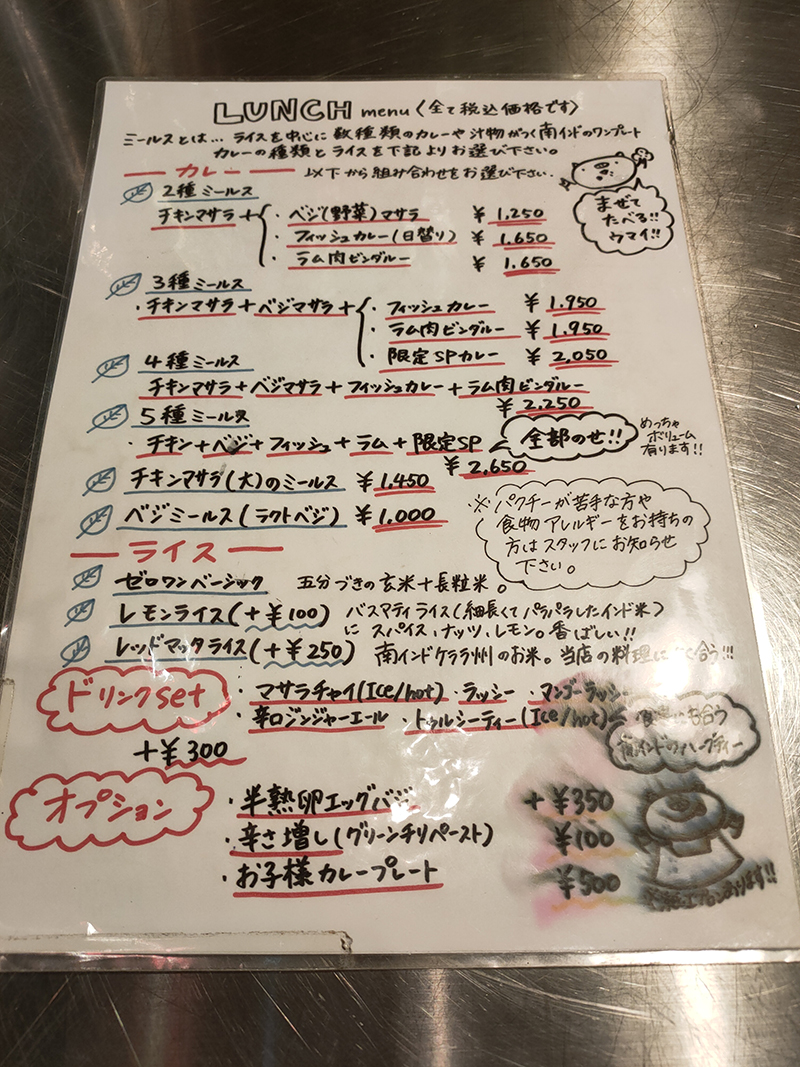 LUNCH menu (全て税込価格です)
ミールスとは… ライスを中心に数種類のカレーや汁物がつく南インドのワンプレート
カレーの種類とライスを下記よりお選び下さい。
カレー 以下から組み合わせをお選び下さい.
2種ミールス
まぜて
たべる!!
ウマイ!!
チキンマサラ+ ・ベジ(野菜)マサラ ¥1,250
・フィッシュカレー(日替り) ¥1,650
・ラム肉ビンダルー ¥1,650
3種ミールス
・チキンマサラ+ベジマサラ+ ・フィッシュカレー ¥1,950
・ラム肉ビンダルー ¥1,950
・限定SPカレー ¥2,050
4種ミールス
チキンマサラ+ベジマサラ+フィッシュカレー+ラム肉ビンダルー
¥2,250
5種ミールス
・チキン+ベジ+フィッシュ+ラム+限定SP
¥2,650
全部のせ!!
めっちゃ
ボリューム
有ります!!
チキンマサラ(大)のミールス ¥1,450
ベジミールス(ラクトベジ) ¥1,000
※パクチーが苦手な方や
食物アレルギーをお持ちの
方はスタッフにお知らせ
下さい。
ライス
ゼロワンベーシック 五分づきの玄米+長粒米。
レモンライス(+¥100) バスマティライス(細長くてパラパラしたインド米)
にスパイス、ナッツ、レモン。香ばしい!!
レッドマッタライス(+¥250) 南インドケララ州のお米。当店の料理に合う!!!
ドリンクset
+¥300
・マサラチャイ(Ice/hot) ・ラッシー ・マンゴーラッシー
・辛口ジンジャーエール ・トゥルシーティー(Ice/hot)
合う
南インドのハーブティー
オプション
・半熟卵エッグバジ +¥350
・辛さ増し(グリーンチリペースト) ¥100
・お子様カレープレート ¥500
あります!!